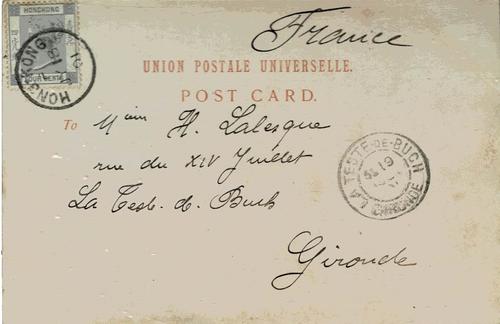 HONGKONG
FOUR CENTS
HONG KONG
France
UNION POSTALE UNIVERSELLE.
POST CARD.
To Mme H. Lalesque
rue du XIV Juillet
La Teste de Buch
Gironde
LA TESTE-DE-BUCH
GIRONDE